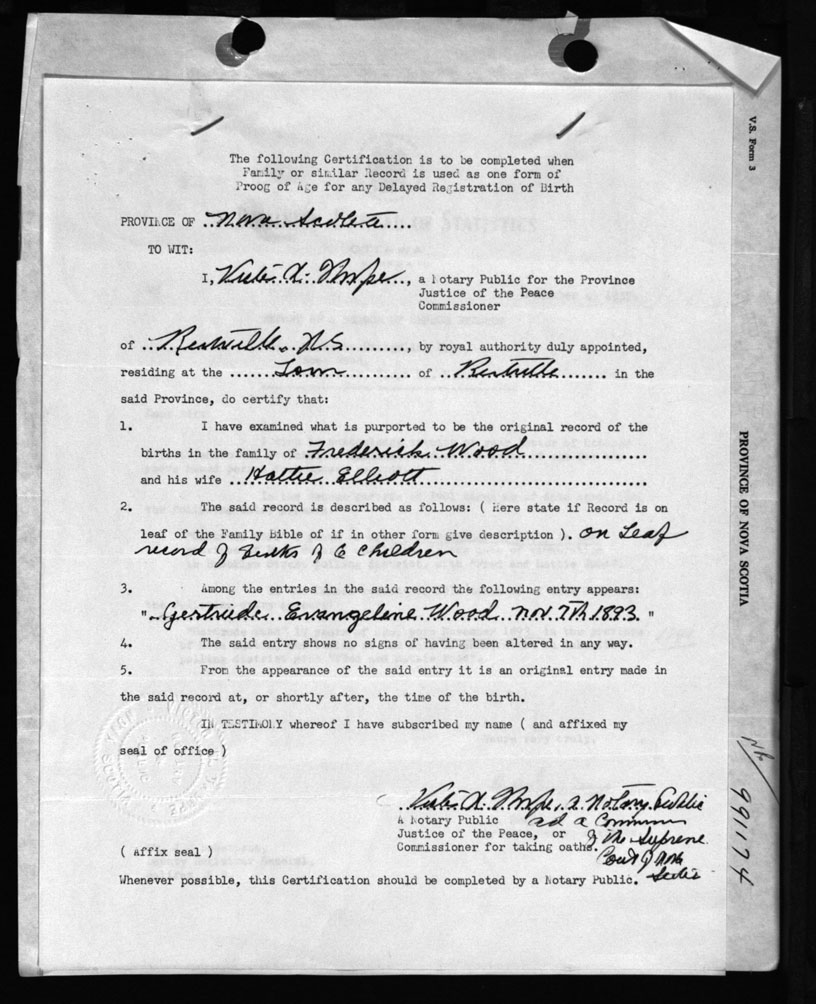 The following Certification is to be completed when
Family or similar Record is used as one form of
Proog of Age for any Delayed Registration of Birth
PROVINCE OF ..Nova Scotia....
TO WIT:
I, Victor H. Thorpe.., a Notary Public for the Province
Justice of the Peace
Commissioner
of ..Kentville, N.S.........., by royal authority duly appointed,
residing at the ......Town........... of ..Kentville....... in the
said Province, do certify that:
1. I have examined what is purported to be the original record of the
births in the family of Frederick Wood..................
and his wife ..Hattie Elliott..................................
2. The said record is described as follows: ( Here state if Record is on
leaf of the Family Bible of if in other form give description ). on Leaf
record of births of 6 children
3. Among the entries in the said record the following entry appears:
"..Gertrude Evangeline Wood Nov. 7th 1893. "
4. The said entry shows no signs of having been altered in any way.
5. From the appearance of the said entry it is an original entry made in
the said record at, or shortly after, the time of the birth.
IN TESTIMONY whereof I have subscribed my name ( and affixed my
seal of office )
Victor H. Thorpe, a Notary Public
A Notary Public and a Commissioner
Justice of the Peace, or of the Supreme
Commissioner for taking oaths. Court of Nova
( Affix seal ) Scotia
Whenever possible, this Certification should be completed by a Notary Public.
V.S. Form 3
PROVINCE OF NOVA SCOTIA
991174